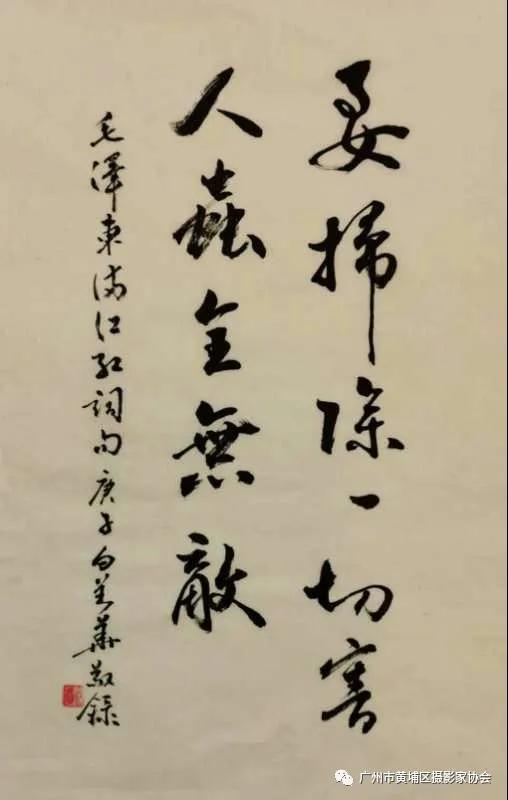 要掃除一切害
人蟲全無敵
毛澤東滿江紅詞句 庚子 華敬錄
广州市黄埔区摄影家协会